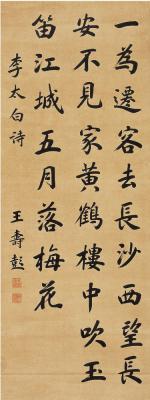 一為遷客去長沙西望長
安不見家黃鶴樓中吹玉
笛江城五月落梅花
李太白诗
王壽彭